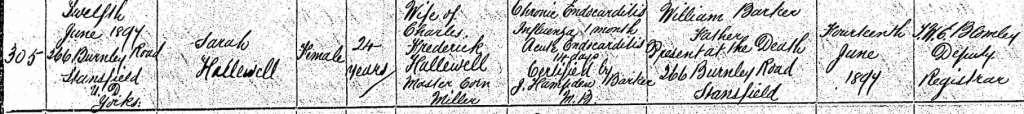 305
Twelfth
June 1897
266 Burnley Road
Stansfield
U D
Yorks.
Sarah
Hallewell
Female
24
years
Wife of
Charles
Frederick
Hallewell
Master Corn
Miller
Chronic Endocarditis
Influenza 1 month
Acute Endocarditis
14 days
Certified by
J. Hampden Barker
M.B
William Barker
Father
Present at the Death
266 Burnley Road
Stansfield
Fourteenth
June
1897
Deputy
Registrar